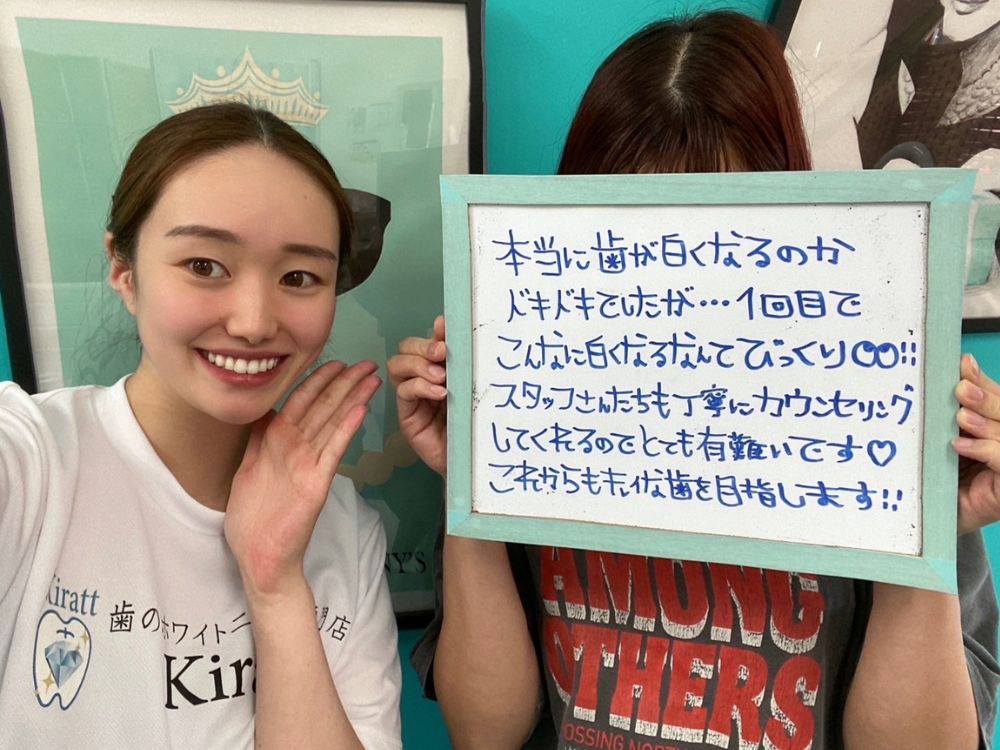 本当に歯が白くなるのか
ドキドキでしたが…1回目で
こんなに白くなるなんてびっくり○○!!
スタッフさんたちも丁寧にカウンセリング
してくれるのでとても有難いです♡
これからもキレイな歯を目指します!!
Kiratt
歯のホワイトニ 門店
Kira
NY'S
AMONG
OTHERS
OSSING NORT